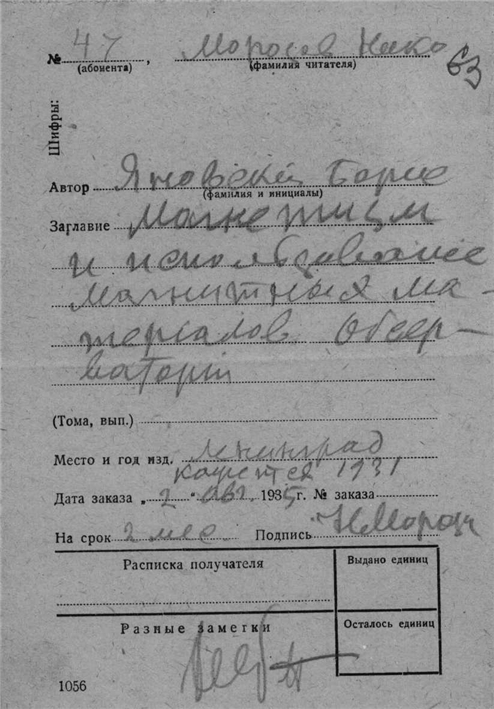 № 47, Морозов Нико
(абонента) (фамилия читателя)
63
Шифры:
Автор Яновский Борис
(фамилия и инициалы)
Заглавие Магнетизм
и использование
магнитных ма-
териалов Обсер-
ватории
(Тома, вып.)
Место и год изд. Ленинград
кажется 1931
Дата заказа „2" авг. 1935 г. № заказа
На срок 2 мес Подпись НМороз
Расписка получателя
Выдано единиц
Разные заметки
Осталось единиц
1056